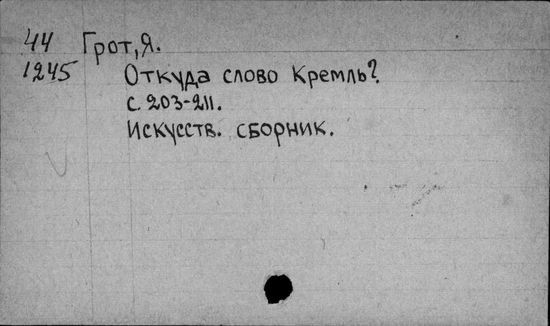 44 Грот, Я.
1245 Откуда слово Кремль?
с. 203-211.
Искусств. сборник.